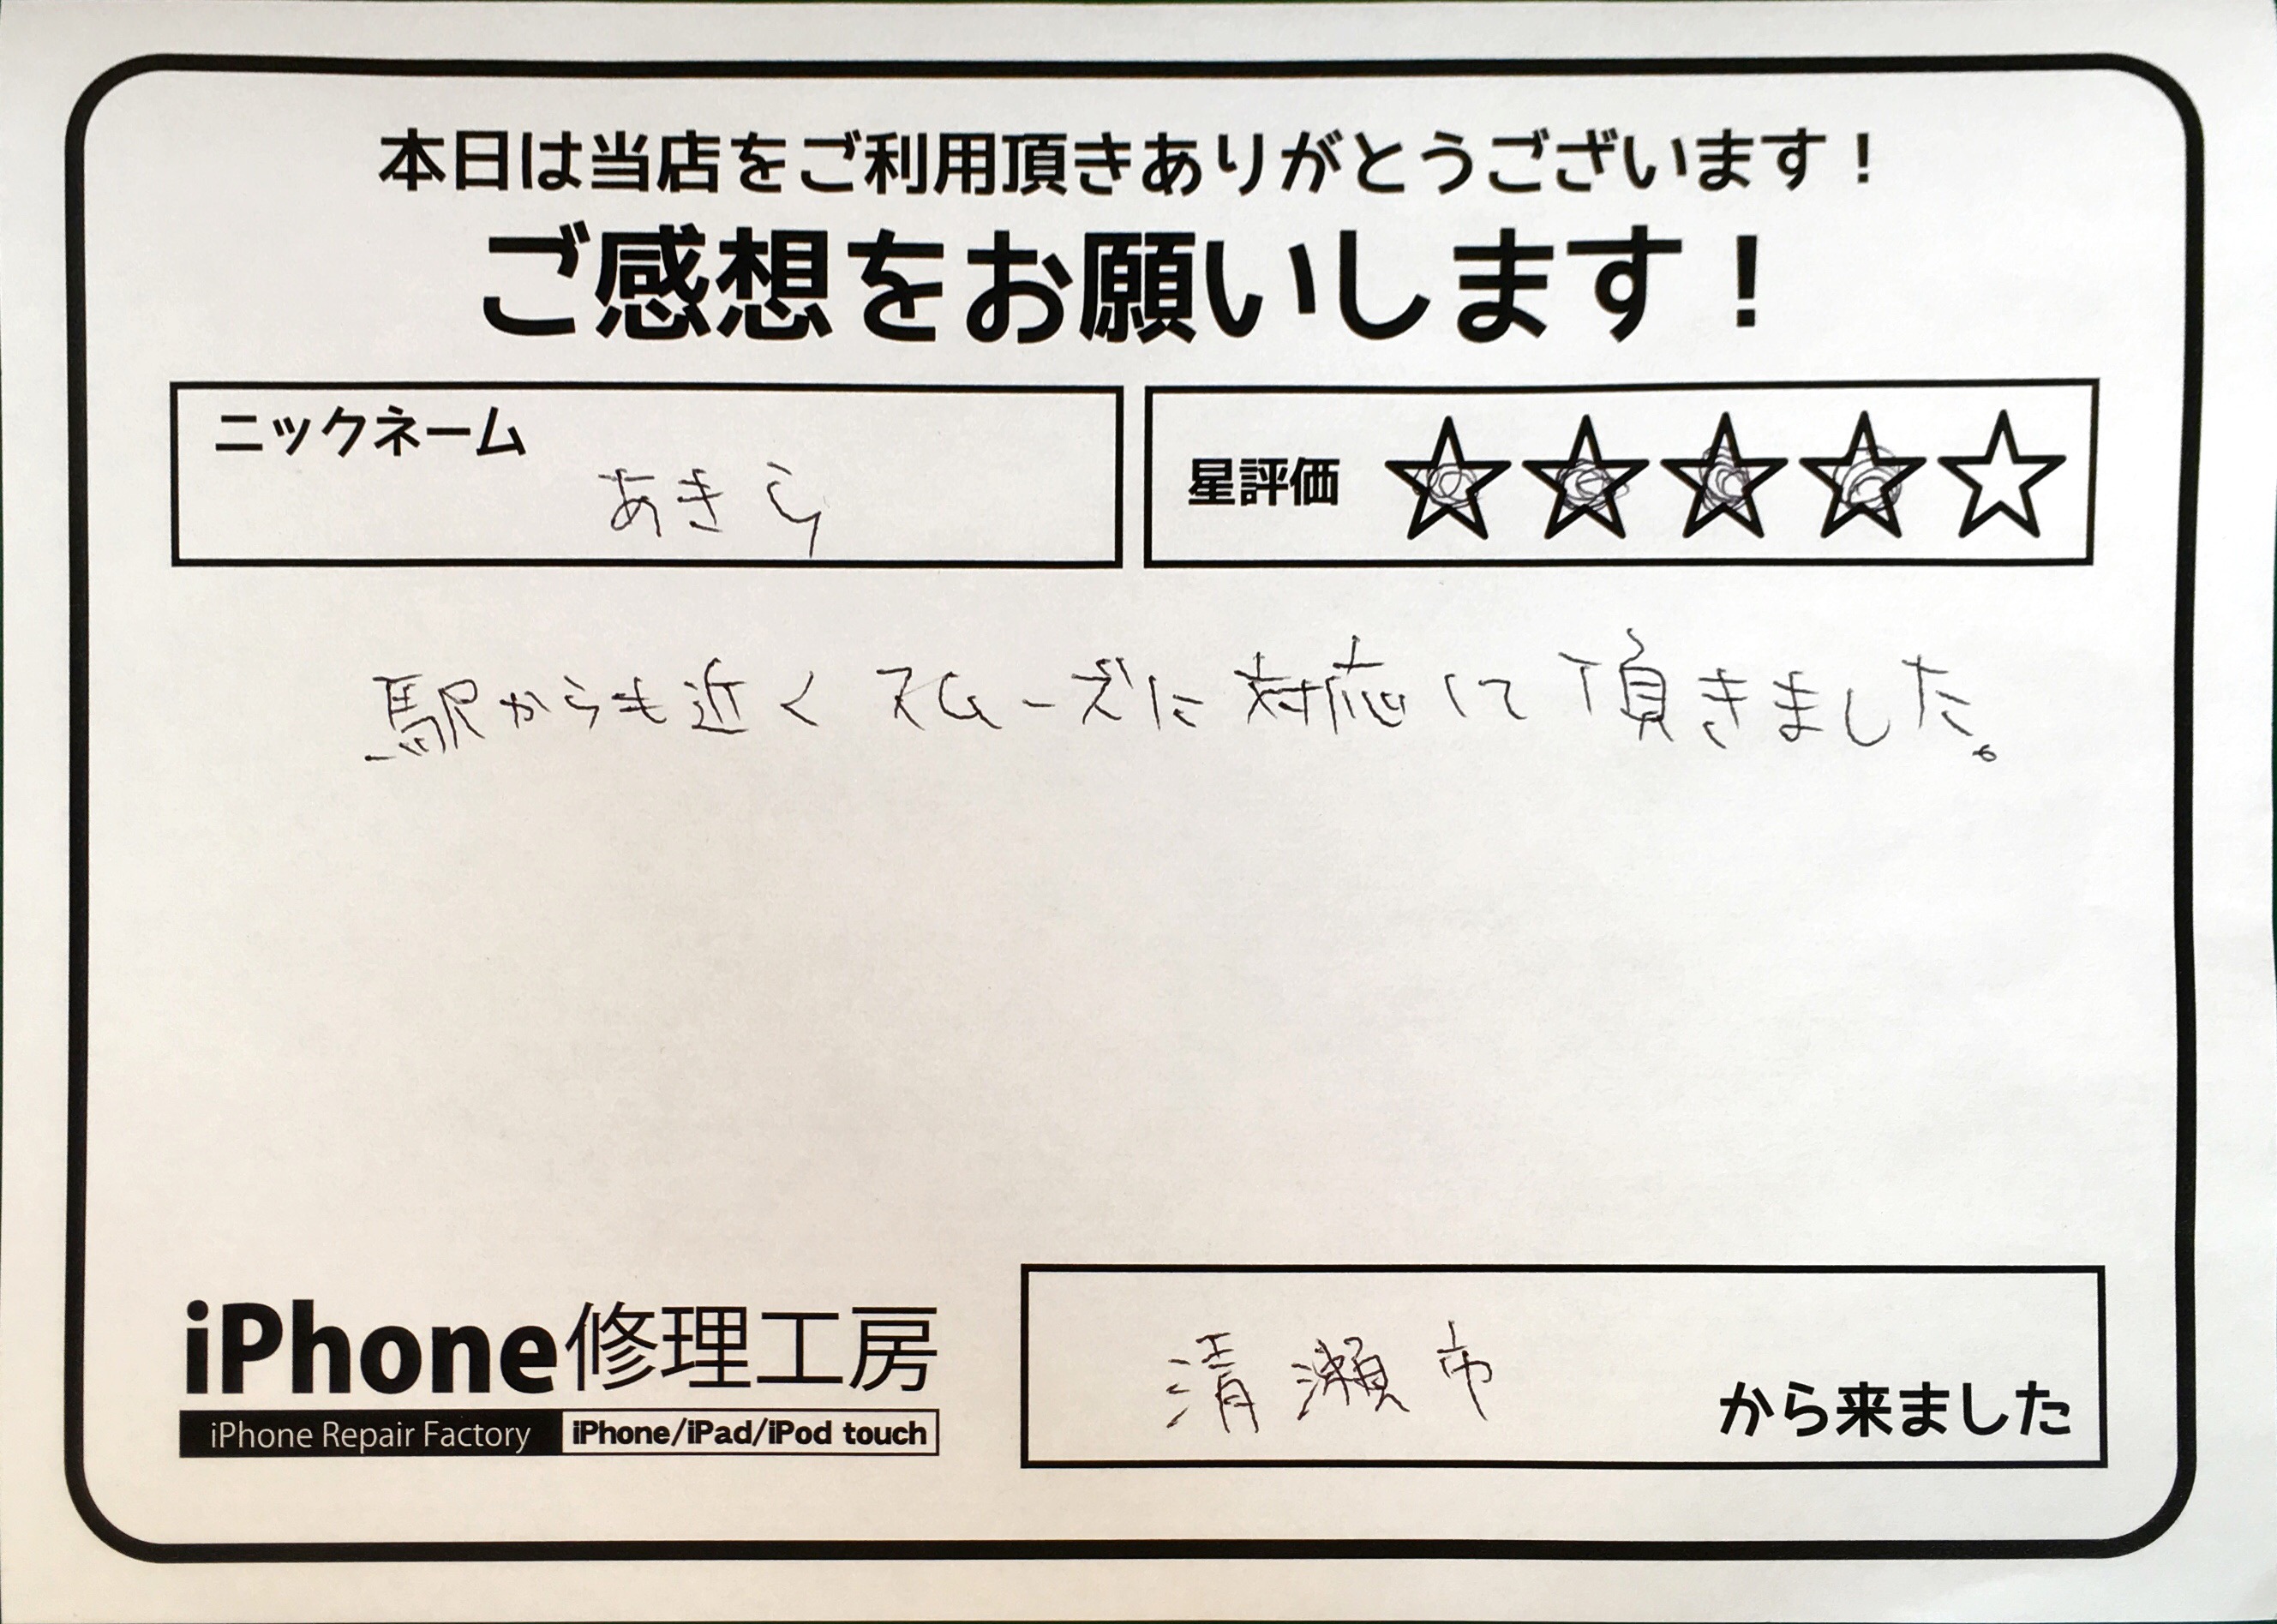 本日は当店をご利用頂きありがとうございます！
ご感想をお願いします！
ニックネーム
あきら
星評価 ☆☆☆☆☆
駅からも近く スムーズに 対応して 頂きました。
iPhone修理工房
iPhone Repair Factory iPhone/iPad/iPod touch
清瀬市 から来ました